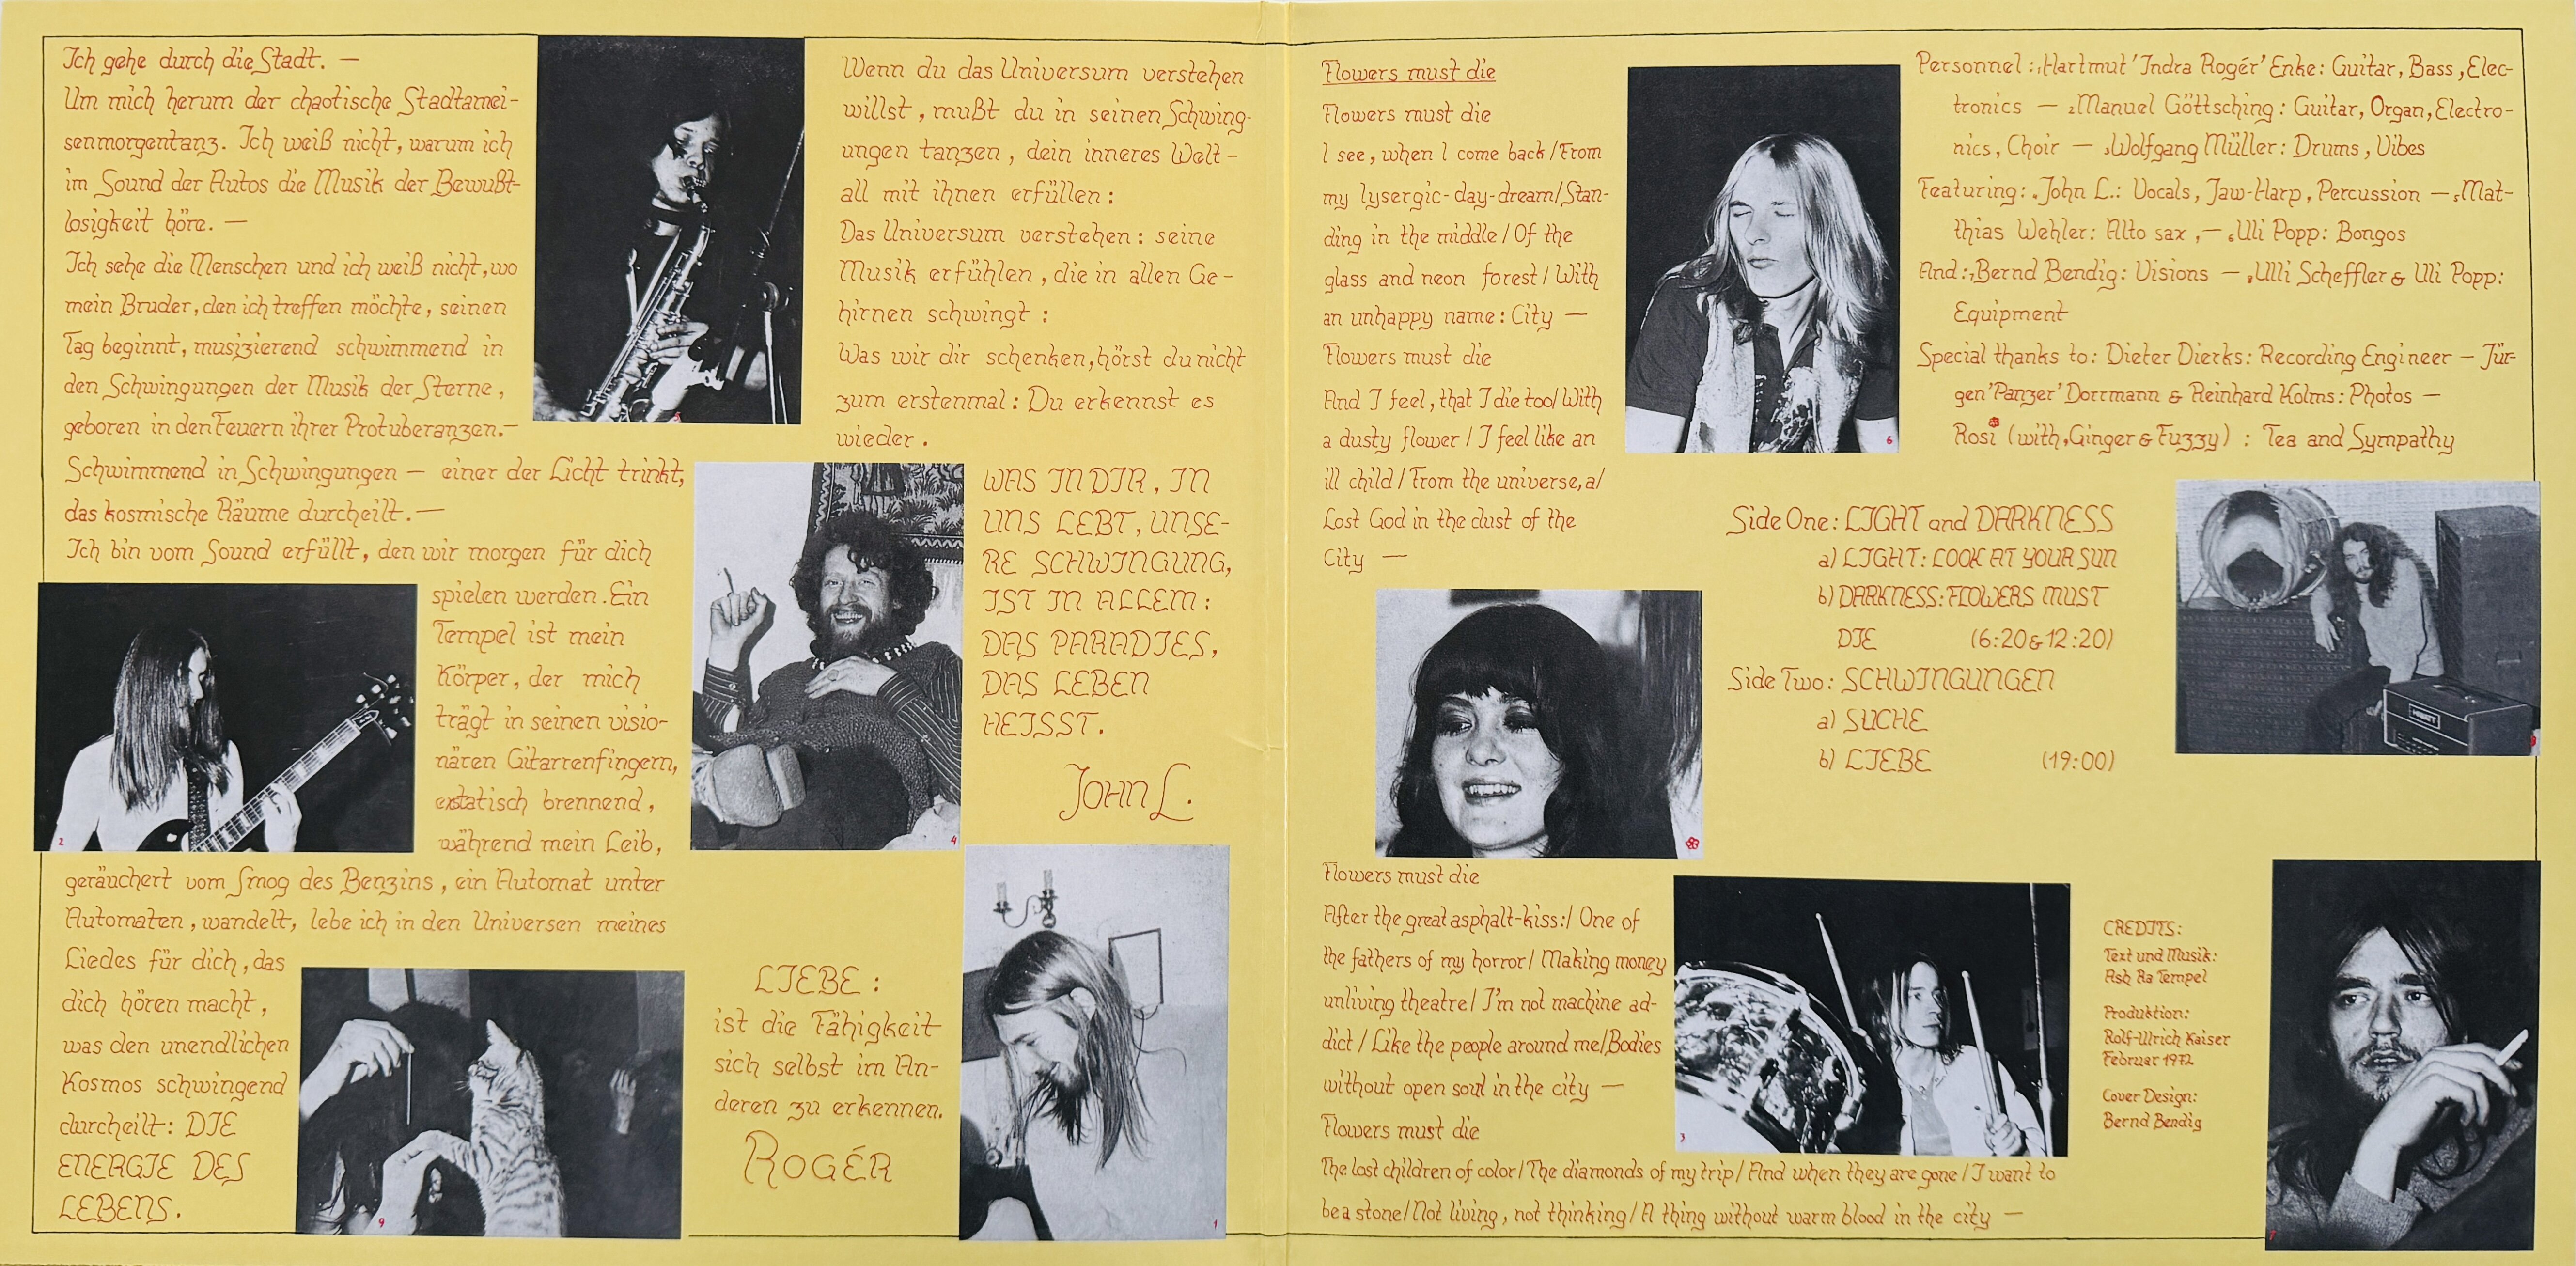 Ich gehe durch die Stadt. —
Um mich herum der chaotische Stadtamei-
senmorgentanz. Ich weiß nicht, warum ich
im Sound der Autos die Musik der Bewußt-
losigkeit höre. —
Ich sehe die Menschen und ich weiß nicht, wo
mein Bruder, den ich treffen möchte, seinen
Tag beginnt, musizierend schwimmend in
den Schwingungen der Musik der Sterne,
geboren in den Feuern ihrer Protuberanzen.—
Schwimmend in Schwingungen — einer der Licht trinkt,
das kosmische Räume durcheilt.—
Ich bin vom Sound erfüllt, den wir morgen für dich
spielen werden. Ein
Tempel ist mein
Körper, der mich
trägt in seinen visio-
nären Gitarrenfingern,
extatisch brennend,
während mein Leib,
geräuchert vom Smog des Benzins, ein Automat unter
Automaten, wandelt, lebe ich in den Universen meines
Liedes für dich, das
dich hören macht,
was den unendlichen
Kosmos schwingend
durcheilt: DIE
ENERGIE DES
LEBENS.
5
2
9
Wenn du das Universum verstehen
willst, mußt du in seinen Schwing-
ungen tanzen, dein inneres Welt-
all mit ihnen erfüllen:
Das Universum verstehen: seine
Musik erfühlen, die in allen Ge-
hirnen schwingt:
Was wir dir schenken, hörst du nicht
zum erstenmal: Du erkennst es
wieder.
WAS IN DIR, IN
UNS LEBT, UNSE-
RE SCHWINGUNG,
IST IN ALLEM:
DAS PARADIES,
DAS LEBEN
HEISST.
JOHN L.
4
LIEBE:
ist die Fähigkeit
sich selbst im An-
deren zu erkennen.
ROGÉR
1
Flowers must die
Flowers must die
I see, when I come back/From
my lysergic-day-dream/Stan-
ding in the middle/Of the
glass and neon forest/With
an unhappy name: City —
Flowers must die
And I feel, that I die too/With
a dusty flower/I feel like an
ill child/From the universe, a/
Lost God in the dust of the
City —
Flowers must die
After the great asphalt-kiss:/One of
the fathers of my horror/Making money
unliving theatre/I'm not machine ad-
dict/Like the people around me/Bodies
without open soul in the city —
Flowers must die
The lost children of color/The diamonds of my trip/And when they are gone/I want to
be a stone/Not living, not thinking/A thing without warm blood in the city —
6
3
Personnel: 1Hartmut 'Indra Rogér' Enke: Guitar, Bass, Elec-
tronics — 2Manuel Göttsching: Guitar, Organ, Electro-
nics, Choir — 3Wolfgang Müller: Drums, Vibes
Featuring: 4John L.: Vocals, Jaw-Harp, Percussion — 5Mat-
thias Wehler: Alto sax, — 6Uli Popp: Bongos
And: 7Bernd Bendig: Visions — 8Ulli Scheffler & Uli Popp:
Equipment
Special thanks to: Dieter Dierks: Recording Engineer — Jür-
gen 'Panzer' Dorrmann & Reinhard Kolms: Photos —
Rosi (with 9Ginger & Fuzzy): Tea and Sympathy
Side One: LIGHT and DARKNESS
a) LIGHT: LOOK AT YOUR SUN
b) DARKNESS: FLOWERS MUST
DIE (6:20 & 12:20)
Side Two: SCHWINGUNGEN
a) SUCHE
b) LIEBE (19:00)
CREDITS:
Text und Musik:
Ash Ra Tempel
Produktion:
Rolf-Ulrich Kaiser
Februar 1972
Cover Design:
Bernd Bendig
7